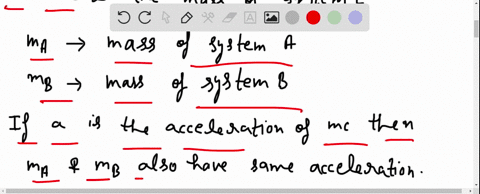 m_A → mass of system A
m_B → mass of system B
If a is the acceleration of mc then
m_A & m_B also have same acceleration.